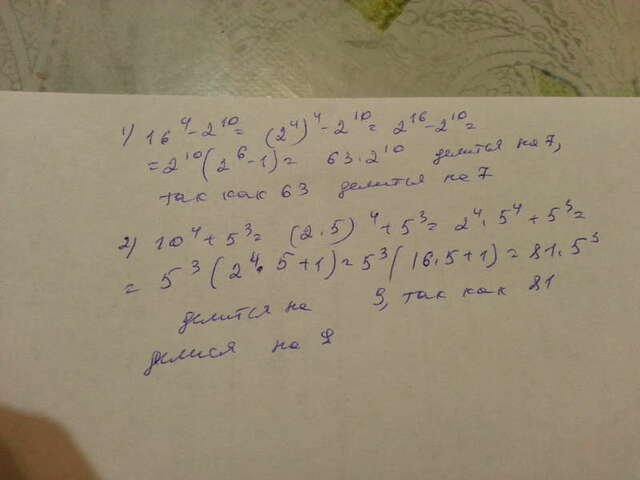 1) 16⁴-2¹⁰= (2⁴)⁴-2¹⁰= 2¹⁶-2¹⁰=
=2¹⁰(2⁶-1)= 63·2¹⁰ делится на 7,
так как 63 делится на 7
2) 10⁴+5³= (2·5)⁴+5³= 2⁴·5⁴+5³=
= 5³(2⁴·5+1)=5³(16·5+1)=81·5³
делится на 9, так как 81
делися на 9